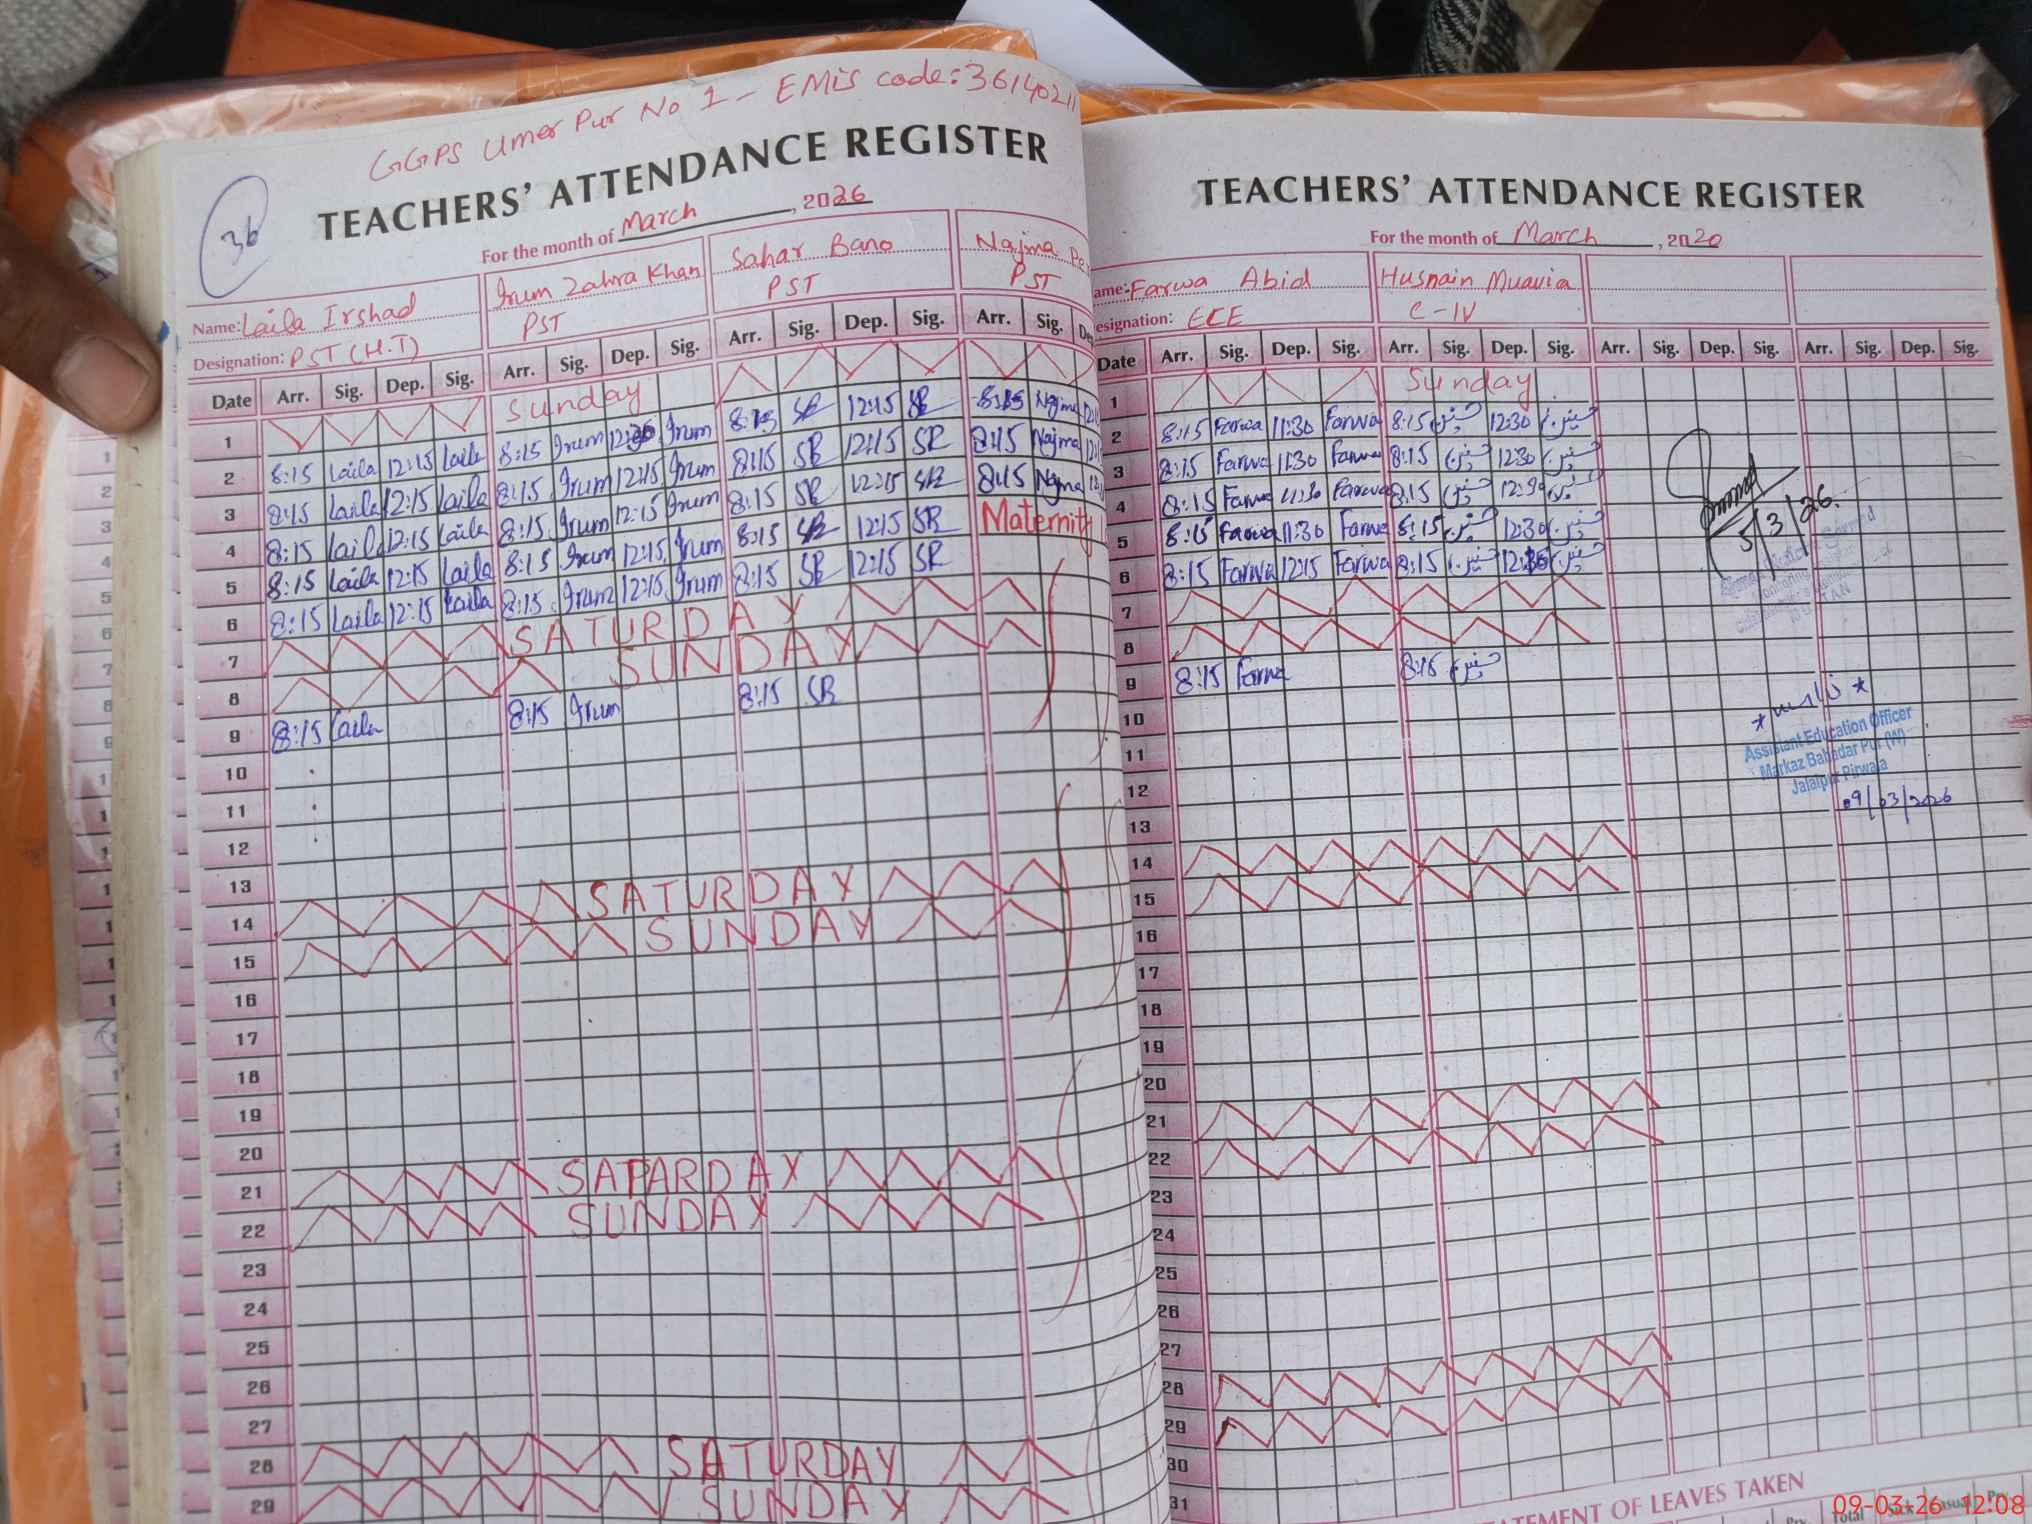 36
GGPS Umer Pur No 1 - EMIS code: 36140211
TEACHERS' ATTENDANCE REGISTER
For the month of March, 2026
Name: Laila Irshad
Designation: PST (H.T)
Irum Zahra Khan
PST
Sahar Bano
PST
Najma Pe
PST
Date Arr. Sig. Dep. Sig. Arr. Sig. Dep. Sig. Arr. Sig. Dep. Sig. Arr. Sig. De
1 Sunday
2 8:15 Laila 12:15 Laila 8:15 Irum Irum 8:15 SB 12:15 SB 8:15 Najma
3 8:15 Laila 12:15 Laila 8:15 Irum 12:15 Irum 8:15 SB 12:15 SB 8:15 Najma
4 8:15 Laila 12:15 Laila 8:15 Irum 12:15 Irum 8:15 SB 12:15 SB 8:15 Najma
5 8:15 Laila 12:15 Laila 8:15 Irum 12:15 Irum 8:15 SB 12:15 SB Maternity
6 8:15 Laila 12:15 Laila 8:15 Irum 12:15 Irum 8:15 SB 12:15 SB
7 SATURDAY
8 SUNDAY
9 8:15 Laila 8:15 Irum 8:15 SB
10
11
12
13
14 SATURDAY
15 SUNDAY
16
17
18
19
20
21 SAPARDAY
22 SUNDAY
23
24
25
26
27
28 SATURDAY
29 SUNDAY
TEACHERS' ATTENDANCE REGISTER
For the month of March, 2020
ame: Farwa Abid
esignation: ECE
Husnain Muavia
C-IV
Date Arr. Sig. Dep. Sig. Arr. Sig. Dep. Sig. Arr. Sig. Dep. Sig. Arr. Sig. Dep. Sig.
1 Sunday
2 8:15 Farwa 11:30 Farwa 8:15 حسنین 12:30 حسنین
3 8:15 Farwa 11:30 Farwa 8:15 حسنین 12:30 حسنین
4 8:15 Farwa 11:30 Farwa 8:15 حسنین 12:30 حسنین
5 8:15 Farwa 11:30 Farwa 8:15 حسنین 12:30 حسنین
6 8:15 Farwa 12:15 Farwa 8:15 حسنین حسنین
7
8
9 8:15 Farwa 8:15 حسنین
10
11
12
13
14
15
16
17
18
19
20
21
22
23
24
25
26
27
28
29
30
31
5/3/26
Assistant Education Officer
Markaz Bahadar Pur (W)
Jalalpur Pirwala
09/03/2026
STATEMENT OF LEAVES TAKEN
Total
09-03-26 12:08